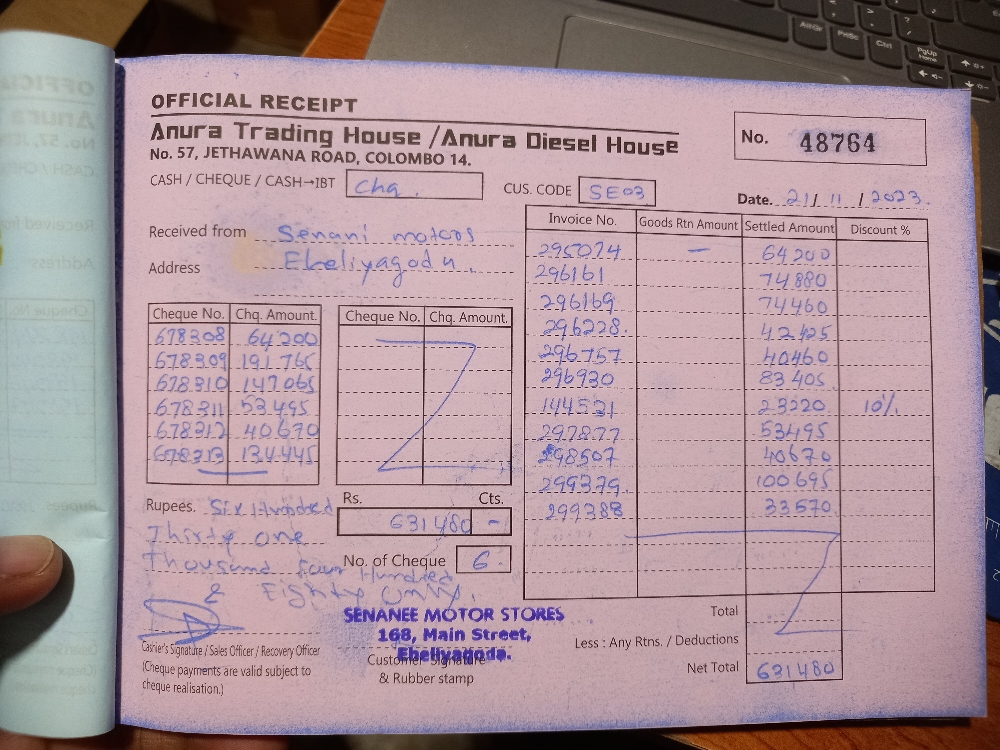 OFFICIAL RECEIPT
Anura Trading House / Anura Diesel House
No. 57, JETHAWANA ROAD, COLOMBO 14.
No. 48764
CASH / CHEQUE / CASH→IBT Chq.
CUS. CODE SE03
Date. 21/ 11 / 2023
Received from Senani motors
Address Eheliyagoda.
Cheque No. Chq. Amount.
678308 64200
678309 191765
678310 147065
678311 53495
678312 40670
678313 134445
Cheque No. Chq. Amount.
Invoice No. Goods Rtn Amount Settled Amount Discount %
295074 — 64200
296161 74880
296169 74460
296228. 42425
296757 40460
296930 83405
144531 23220 10%
297877 53495
298507 40670
299379 100695
299388 33570
Rupees. Six Hundred
Thirty one
Thousand four Hundred
& Eighty only.
Rs. Cts.
631480 -
No. of Cheque 6
Cashier's Signature / Sales Officer / Recovery Officer
(Cheque payments are valid subject to
cheque realisation.)
SENANEE MOTOR STORES
168, Main Street,
Eheliyagoda.
Customer Signature
& Rubber stamp
Total
Less : Any Rtns. / Deductions
Net Total 631480
AltGr
PrtSc
Ctrl
PgUp
Home